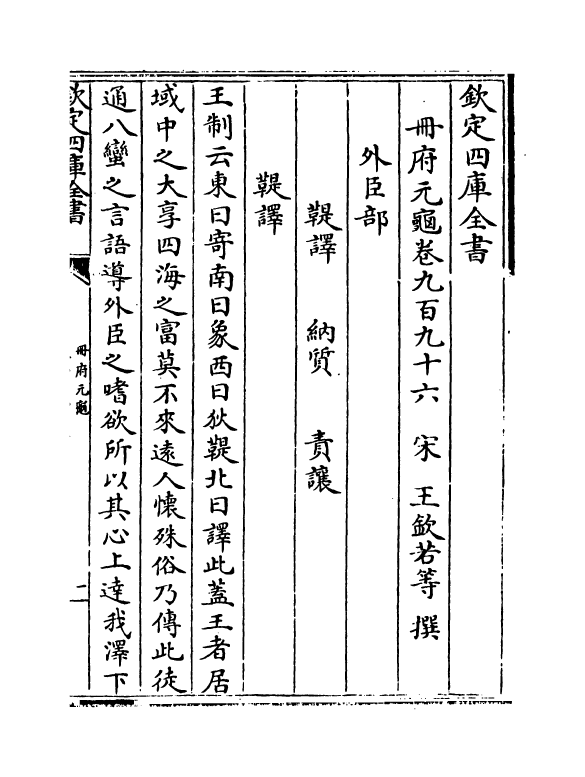 欽定四庫全書
冊府元龜卷九百九十六 宋 王欽若等 撰
外臣部
鞮譯 納質 責讓
鞮譯
王制云東曰寄南曰象西曰狄鞮北曰譯此蓋王者居
域中之大享四海之富莫不來逺人懷殊俗乃傳此徒
通八蠻之言語導外臣之嗜欲所以其心上達我澤下
欽定四庫全書
冊府元龜
二